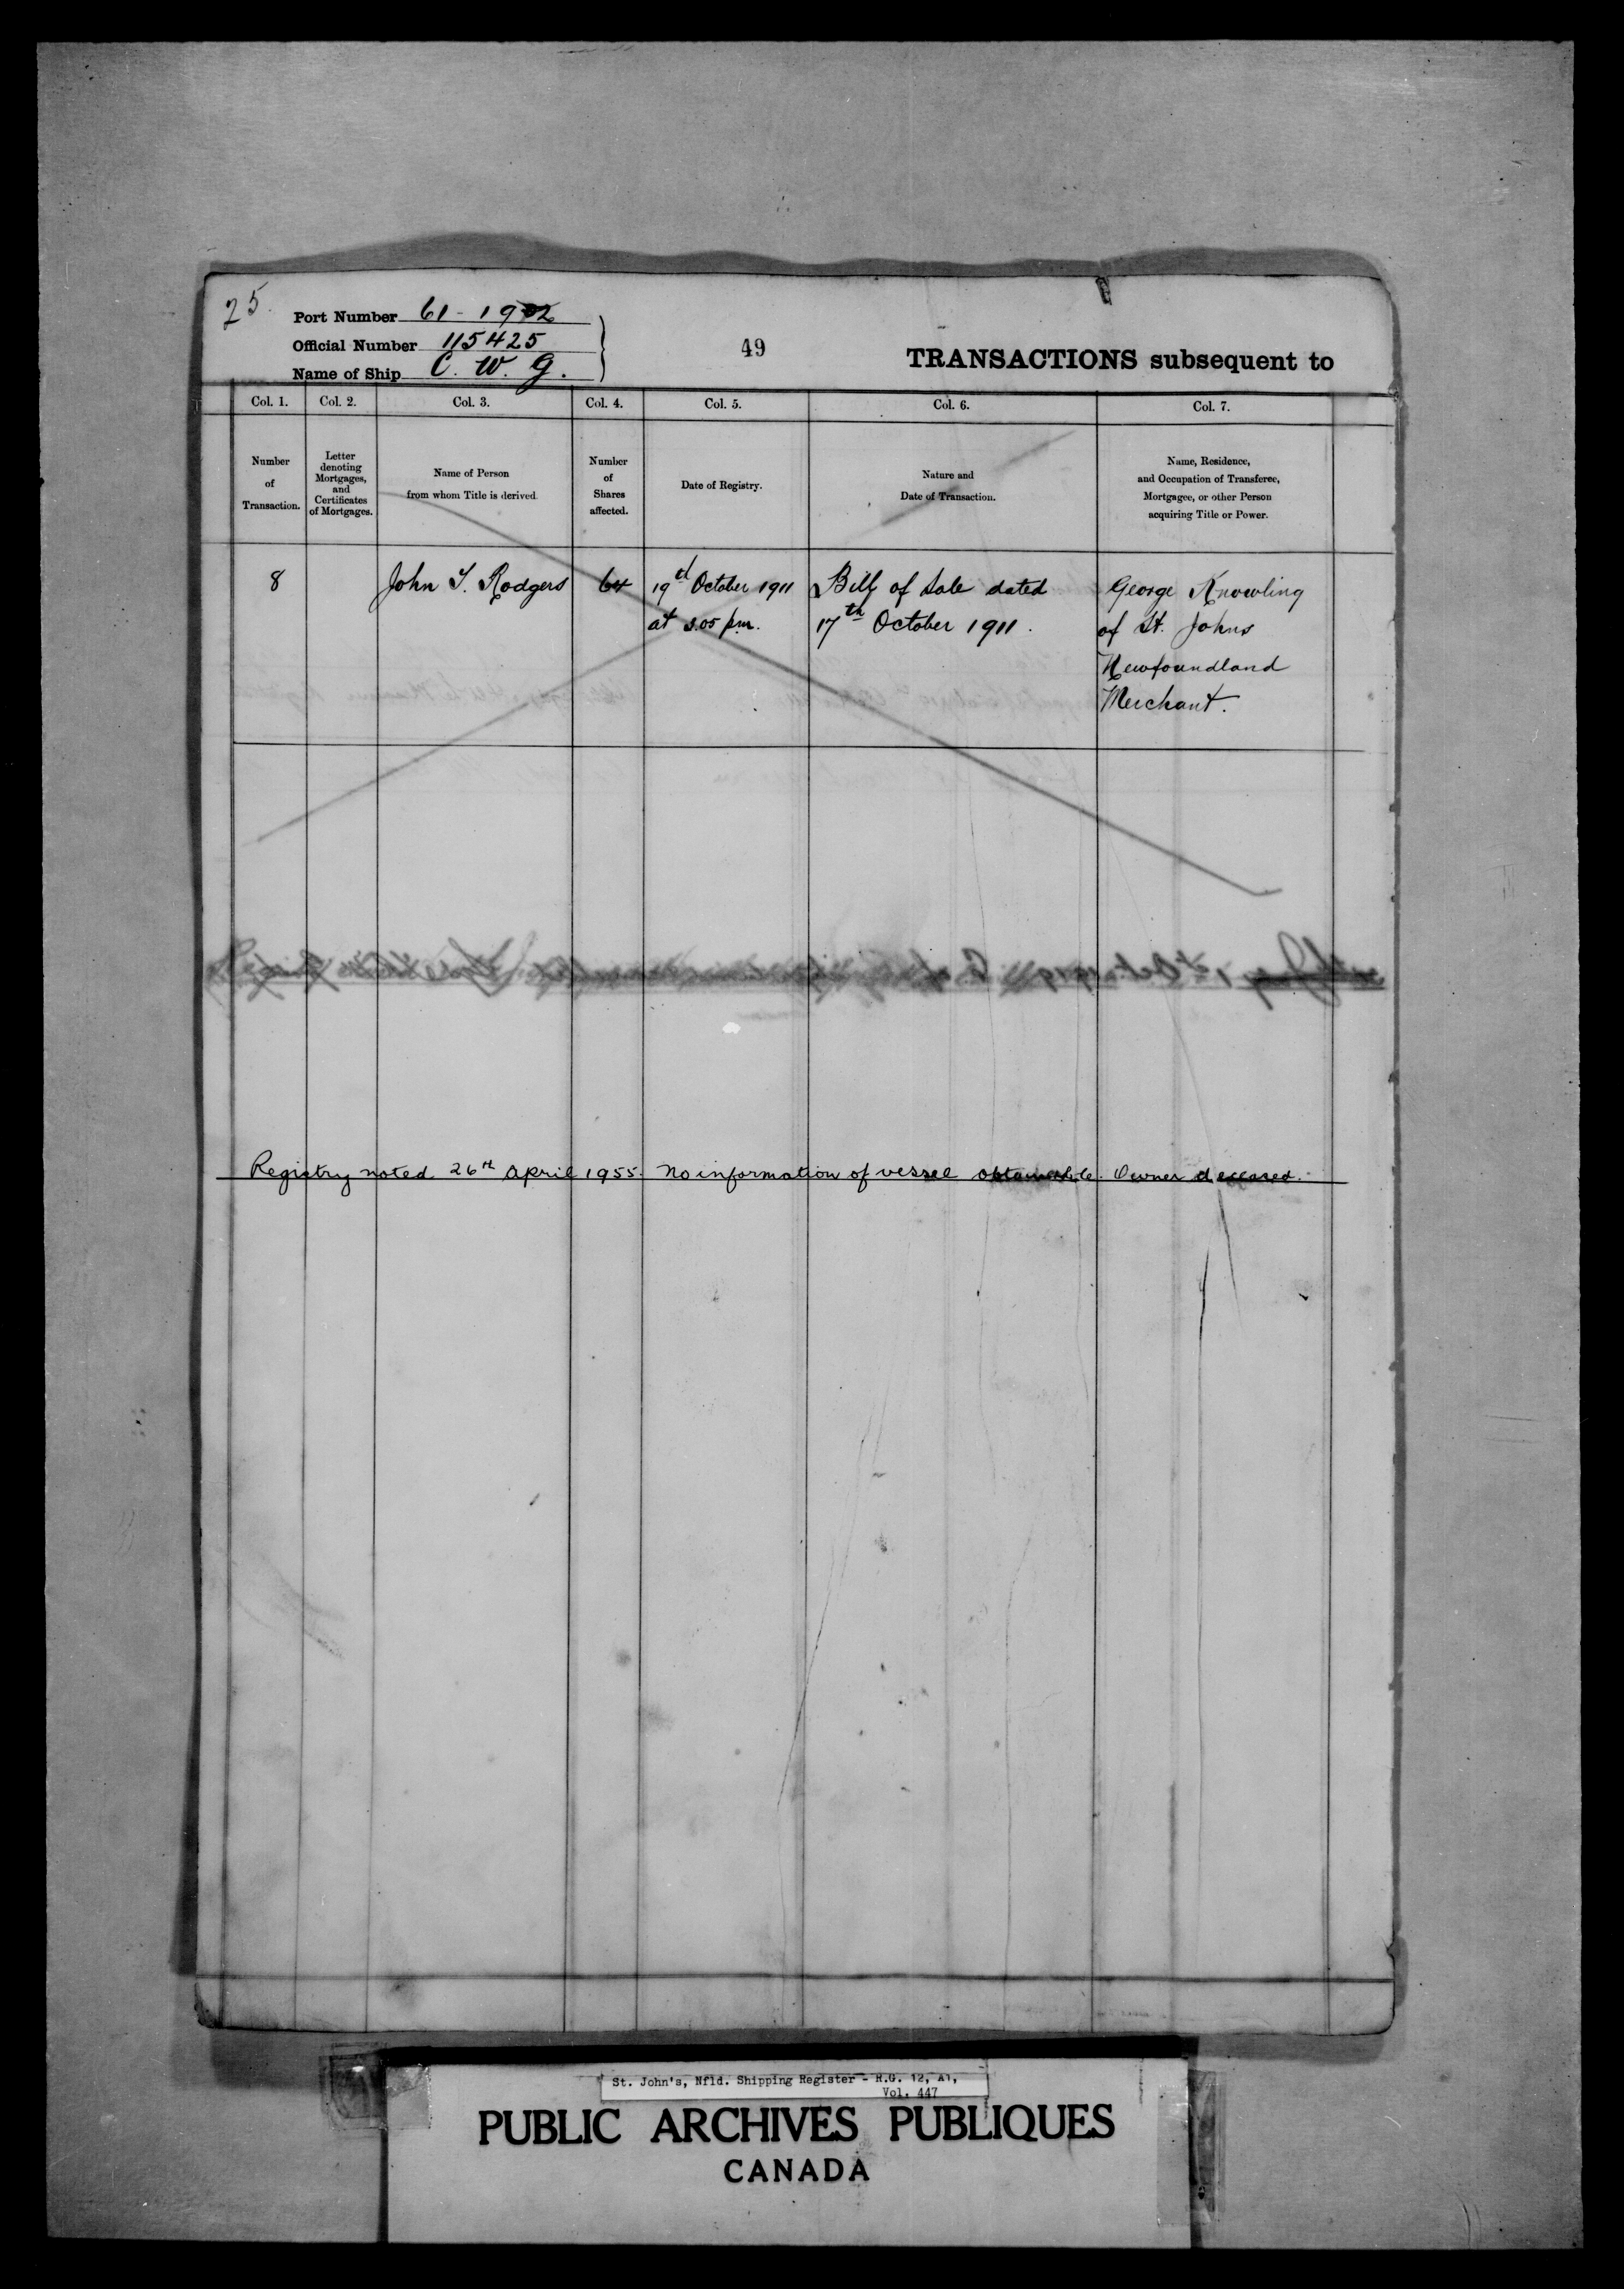 25.
Port Number 61-1902
Official Number 115425
Name of Ship C. W. G.
49
TRANSACTIONS subsequent to
Col. 1. Col. 2. Col. 3. Col. 4. Col. 5. Col. 6. Col. 7.
Number
of
Transaction.
Letter
denoting
Mortgages,
and
Certificates
of Mortgages.
Name of Person
from whom Title is derived.
Number
of
Shares
affected.
Date of Registry.
Nature and
Date of Transaction.
Name, Residence,
and Occupation of Transferee,
Mortgagee, or other Person
acquiring Title or Power.
8
John T. Rodgers
64
19th October 1911
at 3.05 p.m.
Bill of Sale dated
17th October 1911.
George Knowling
of St. Johns
Newfoundland
Merchant.
Registry noted 26th April 1955. No information of vessel obtainable. Owner deceased.
St. John's, Nfld. Shipping Register - R.G. 12, A1,
Vol. 447
PUBLIC ARCHIVES PUBLIQUES
CANADA